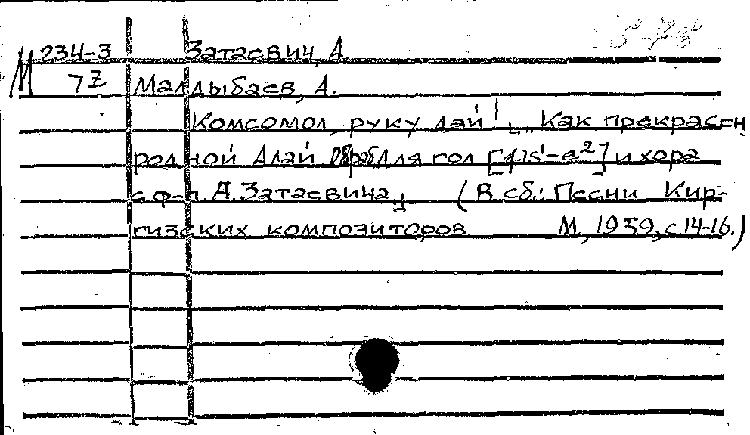 М 234-3 Затаевич, А.
72 Малдыбаев, А.
Комсомол, руку дай! Как прекрасен
родной Алай. Обраб. для гол. [fis¹-a²] и хора
с ф-п. А. Затаевича. (В сб.: Песни Кир-
гизских композиторов М., 1939, с 14-16.)